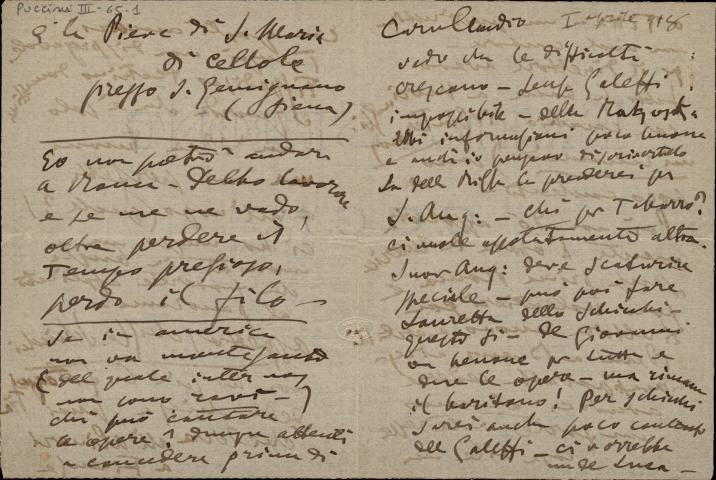 Puccini III-65-1
È la Pieve di S. Maria
di Cellole
presso S. Gemignano
(Siena)
Io non potrò andare
a Roma - Debbo lavorare
e se me ne vado,
oltre perdere il
tempo prezioso,
perdo il filo -
Se in america
non va montesanto
(del quale
non sono
chi può cantare
le opere? dunque attenti
a concedere prima di
Caro Clausetti I aprile 918
vedo che le difficoltà
crescono - senza Galeffi
impossibile - della
ebbi informazioni poco buone
e anch'io pensavo di scartarla
La dalla Rizza la prenderei per
S. Ang: - chi per Tabarro?
ci vuole assolutamente altra.
Suor Ang: deve scaturire
speciale - può poi fare
Lauretta dello Schicchi -
questo sì - De Giovanni
va benone per tutte e
due le opere - ma rimane
il baritono! Per Schicchi
sarei anche poco contento
del Galeffi - ci vorrebbe
un de Luca -